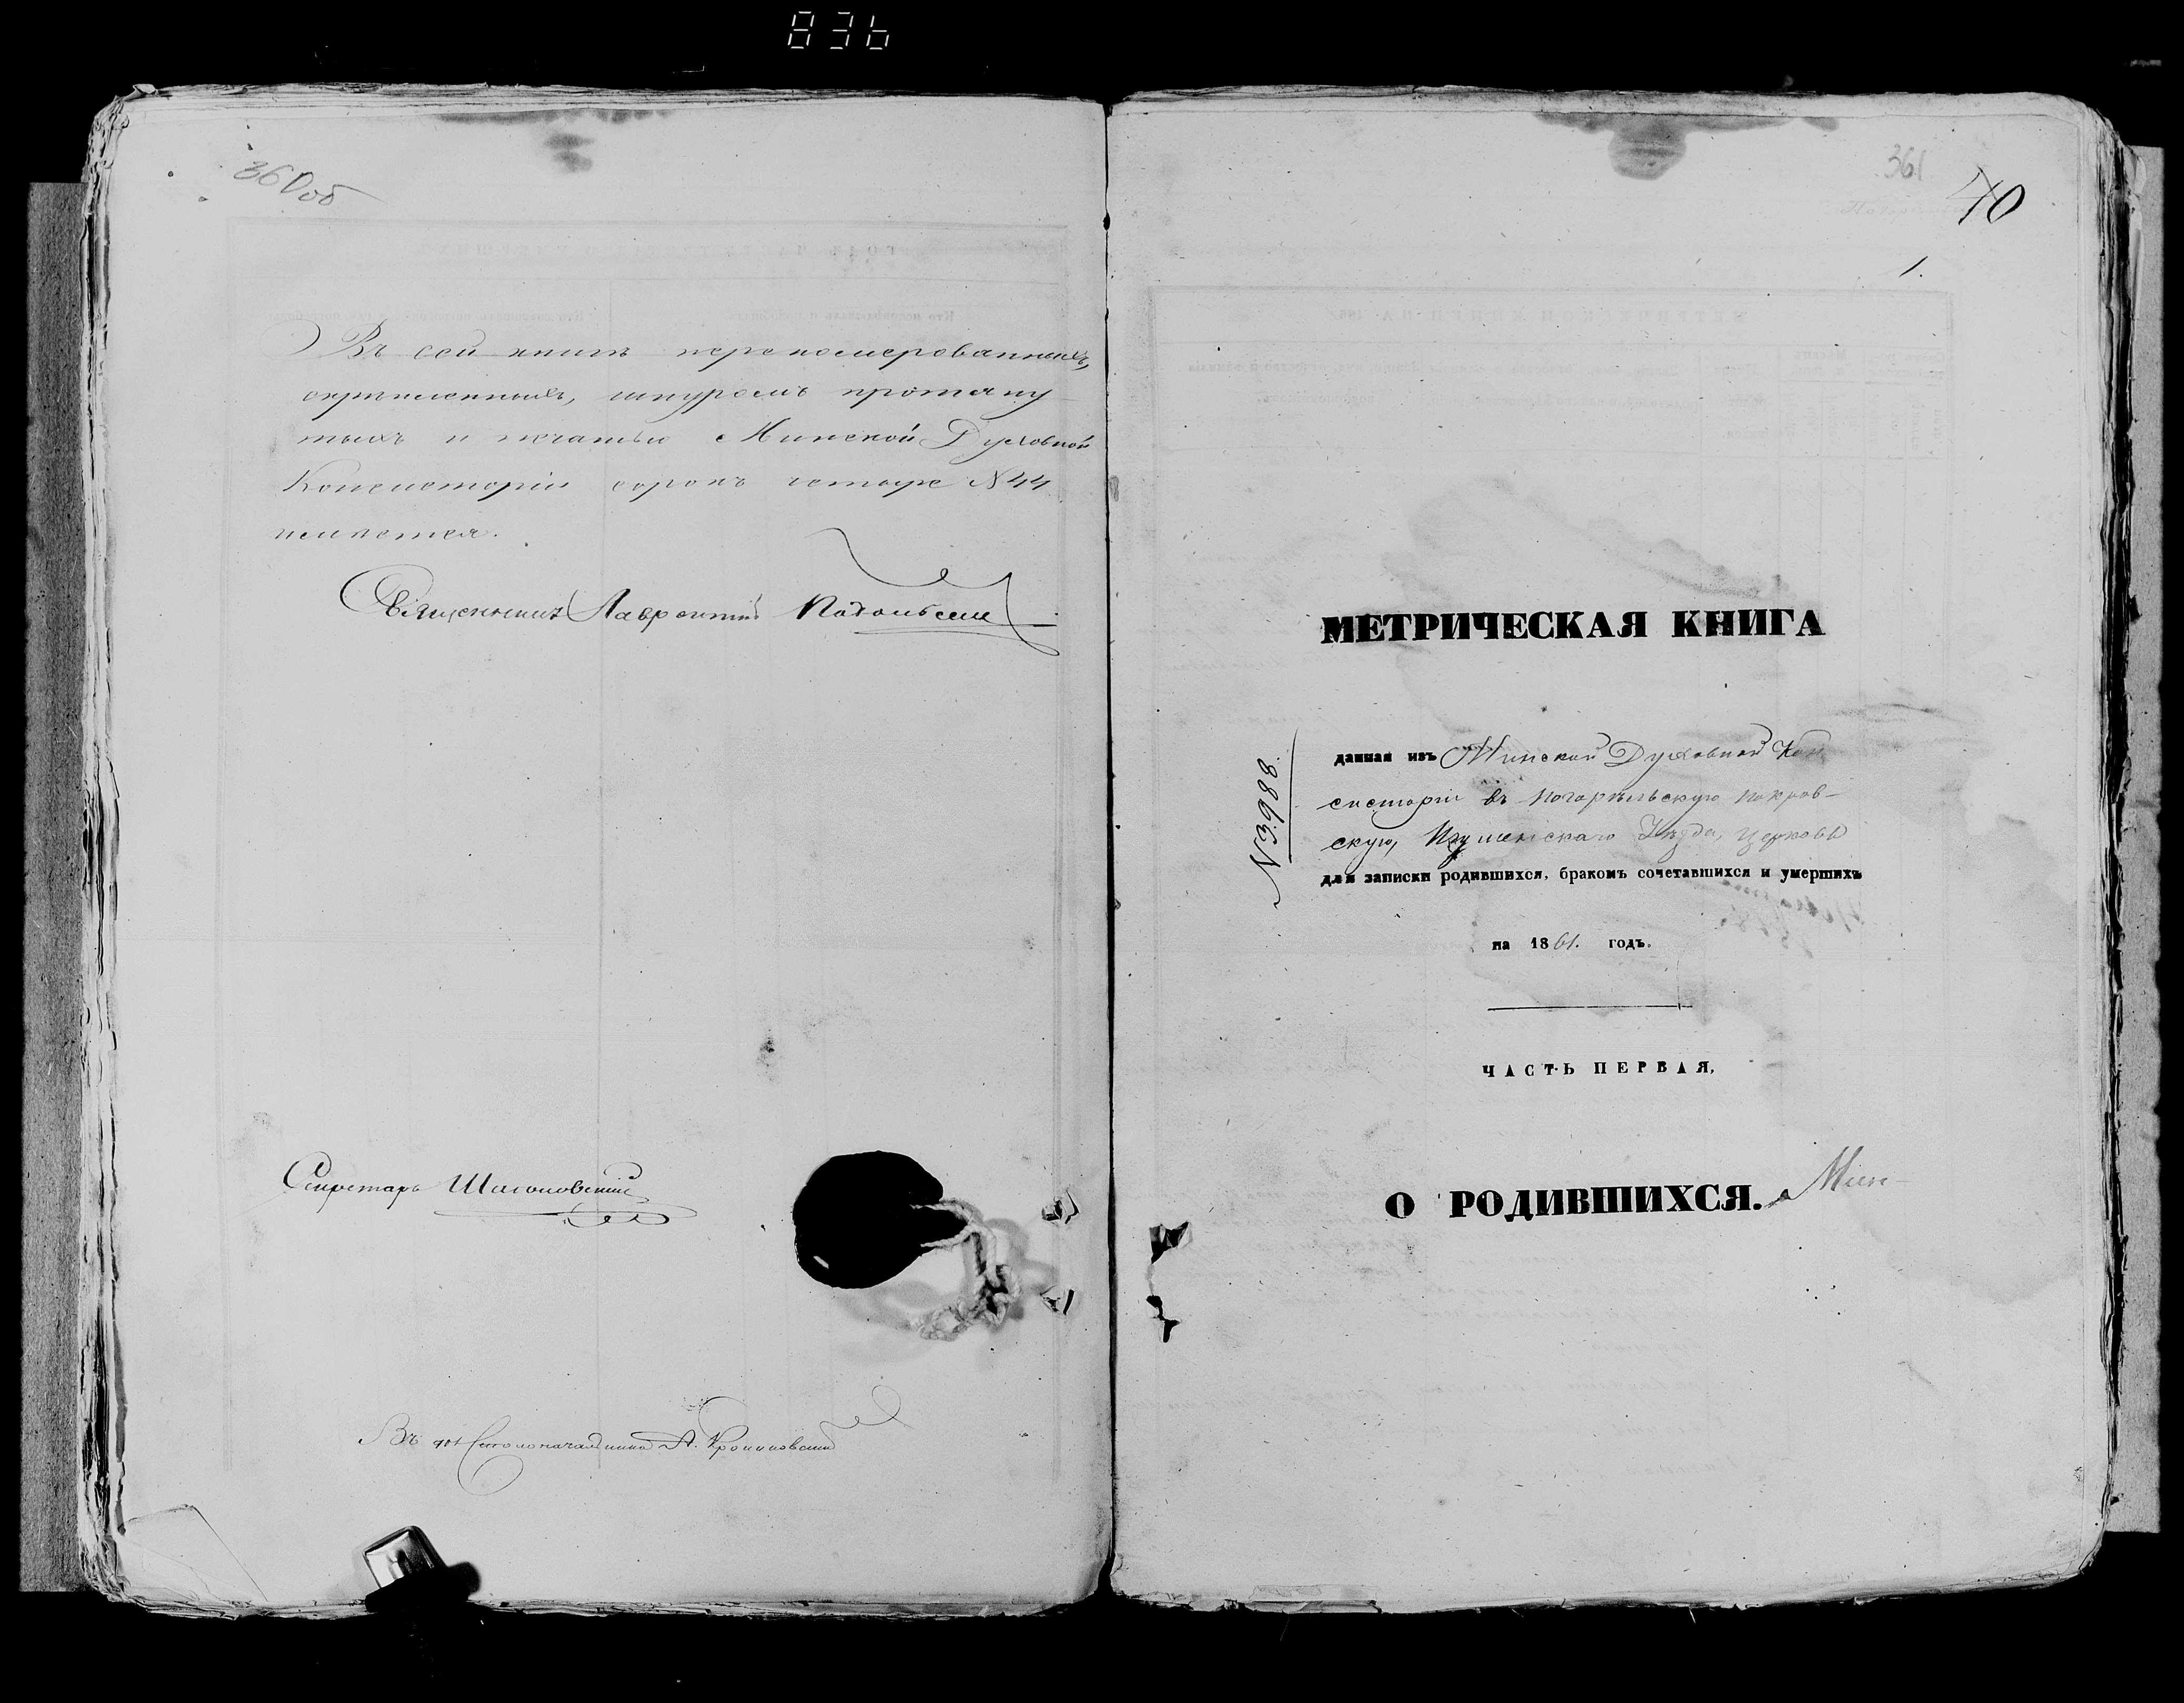 836
360об
Въ сей книгѣ перенумерованныхъ,
скрѣпленныхъ, шнуромъ протяну
тыхъ и печатью Минской Духовной
Консисторіи сорокъ четыре №44
листа.
Священникъ Лаврентій
Секретарь
Въ дол. Столоначальника А.
361
40
1.
МЕТРИЧЕСКАЯ КНИГА
№3988.
данная изъ Минской Духовной Кон
систоріи въ Погорѣльскую Покров-
скую, Игуменскаго Уѣзда, Церковь
для записки родившихся, бракомъ сочетавшихся и умершихъ
на 1861. годъ.
ЧАСТЬ ПЕРВАЯ,
О РОДИВШИХСЯ.
Мин-